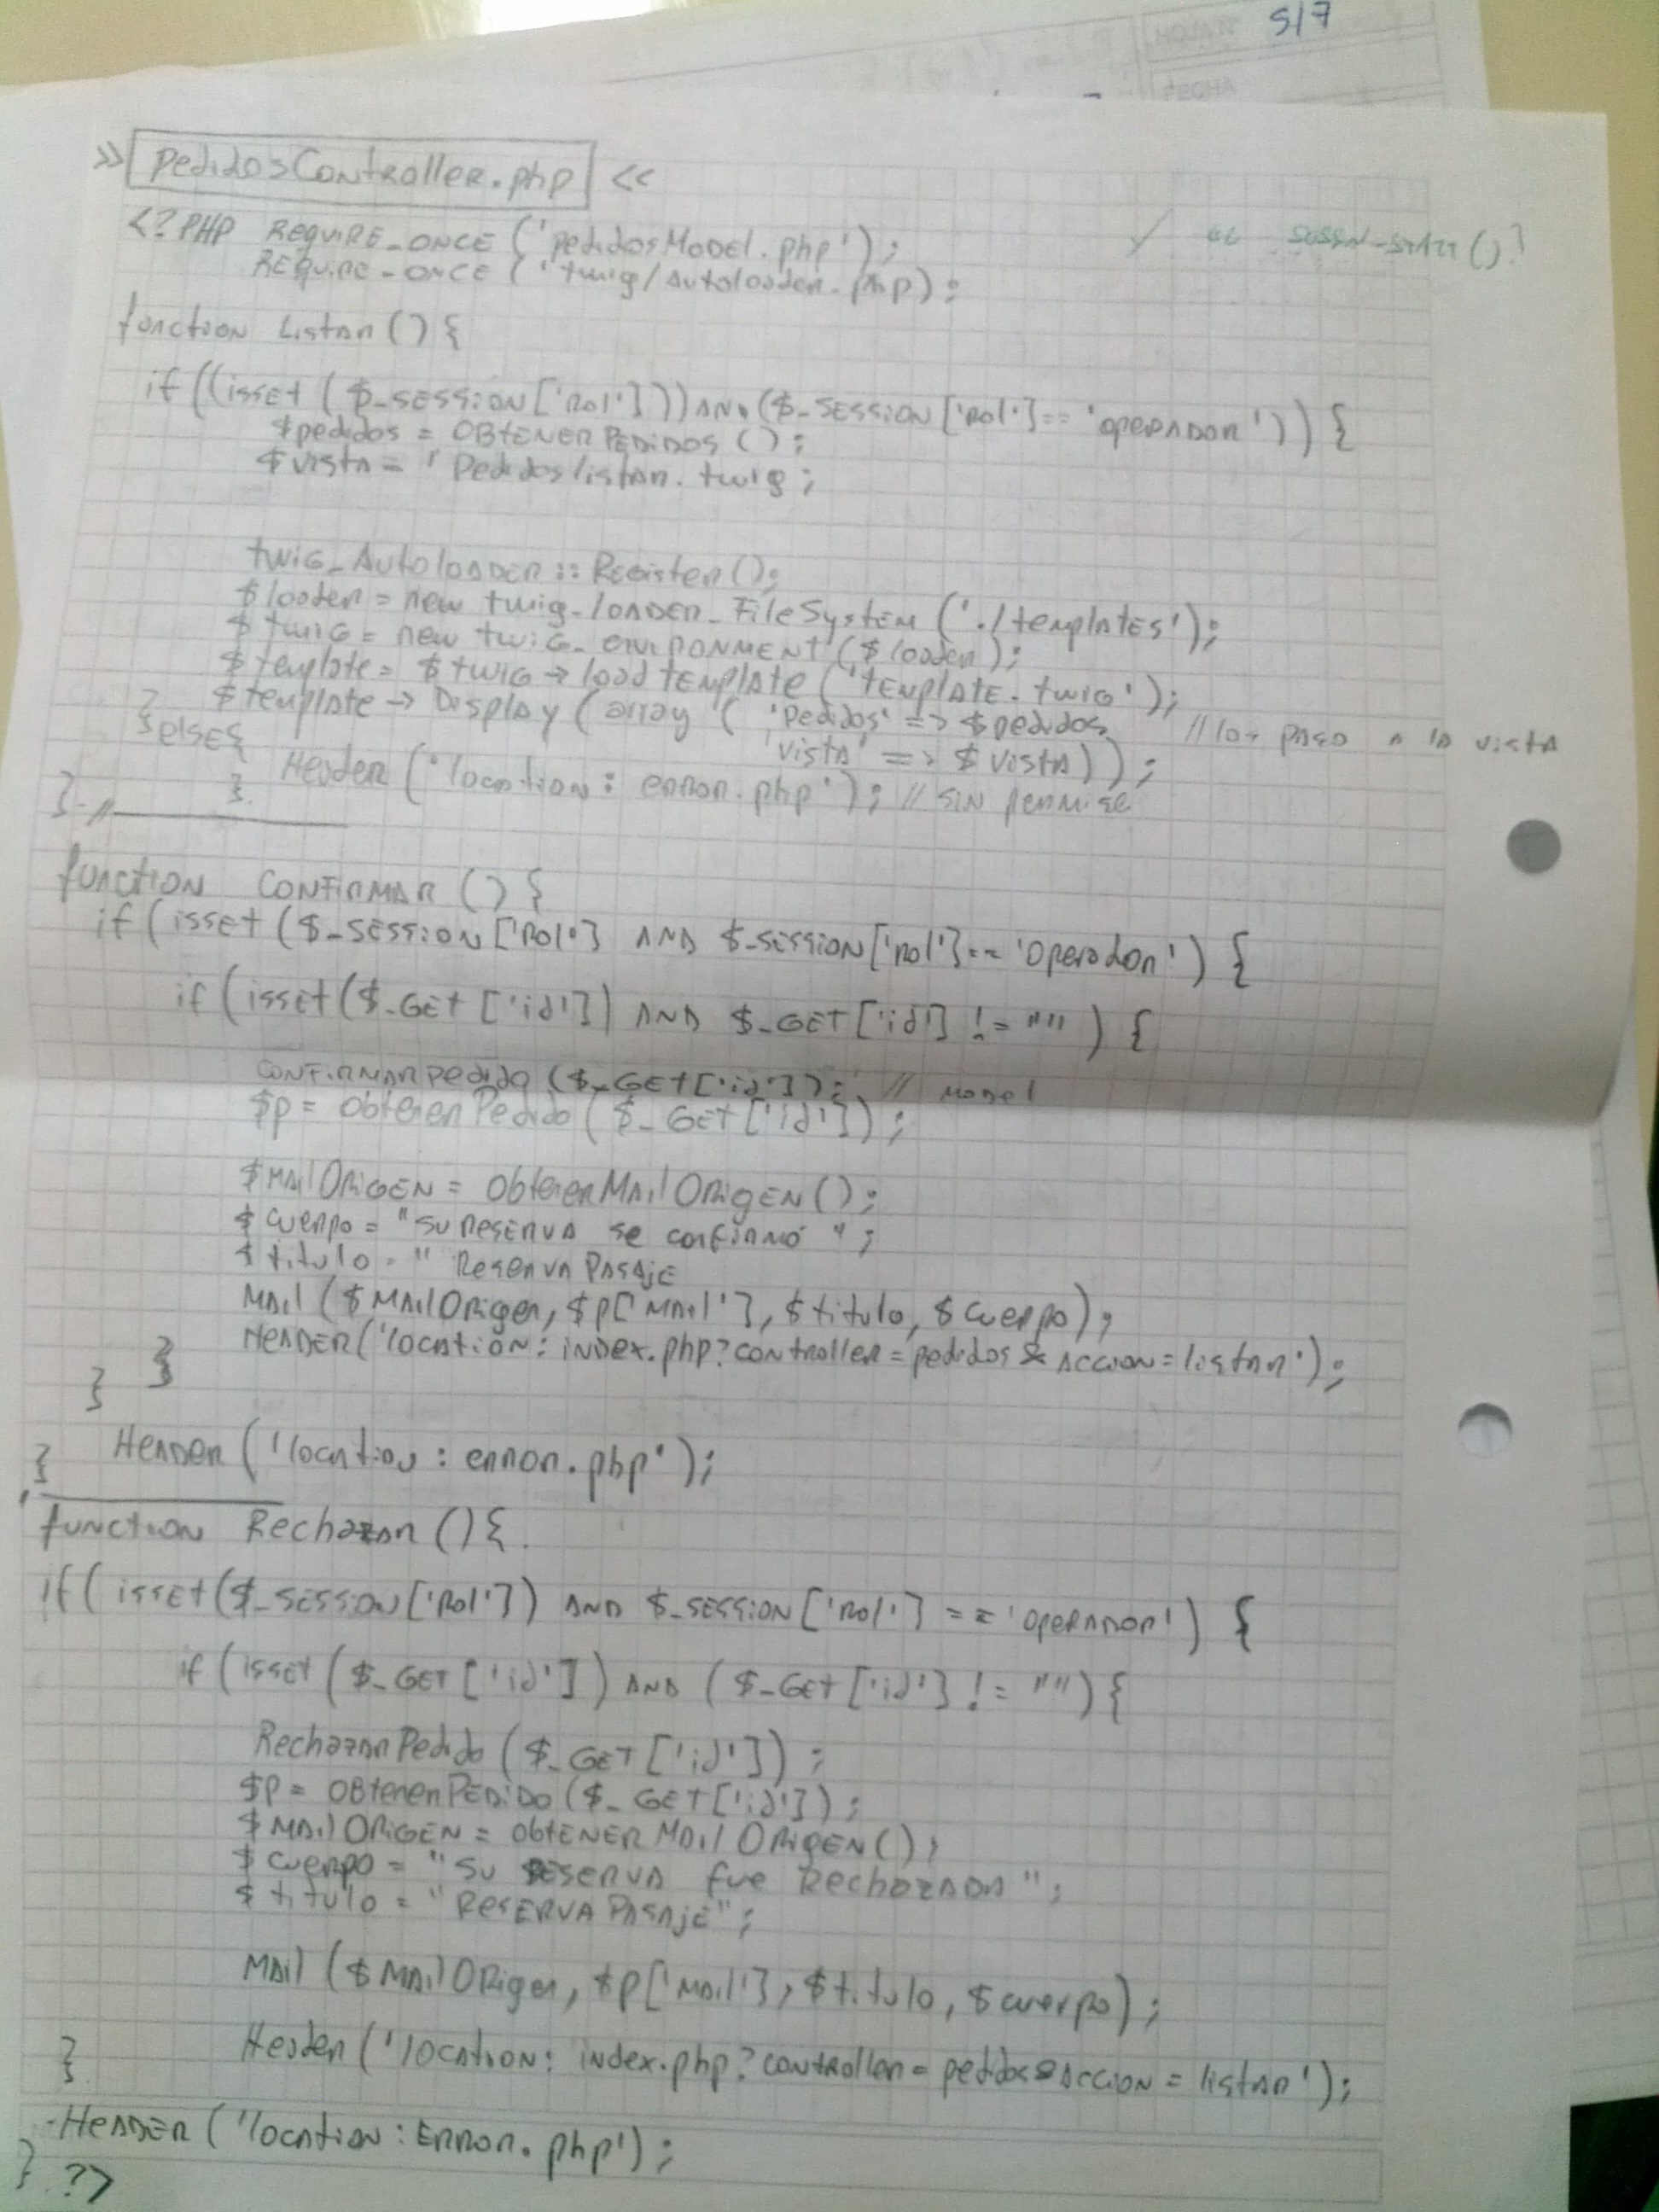 5/7
>> pedidosController.php <<
<?PHP REQUIRE_ONCE ('pedidosModel.php');
REQUIRE_ONCE ('twig/Autoloader.php);
session_start()?
function Listar () {
if ((isset ($_SESSION['Rol'])) AND ($_SESSION['Rol'] == 'operador')) {
$pedidos = OBTENERPEDIDOS ();
$vista = 'Pedidoslistar.twig;
twig_Autoloader :: Register();
$loader = new twig_loader_FileSystem ('./templates');
$twig = new twig_environment ($loader);
$template = $twig -> loadtemplate ('template.twig');
$template -> Display (array ( 'Pedidos' => $pedidos, // los paso a la vista
'vista' => $vista));
}else{
Header ('location: error.php'); // sin permiso
}
} //
function CONFIRMAR () {
if (isset ($_SESSION['Rol'] AND $_SESSION['rol'] == 'Operador') {
if (isset ($_GET ['id']) AND $_GET ['id'] != "") {
CONFIRMARpedido ($_GET['id']); // model
$p = obtenerPedido ($_GET['id']);
$MailORIGEN = obtenerMailORIGEN ();
$cuerpo = "su reserva se confirmó";
$titulo = " Reserva Pasaje
Mail ($MailOrigen, $p['Mail'], $titulo, $cuerpo);
HEADER('location: index.php?controller=pedidos & accion=listar');
}
}
Header ('location: error.php');
}
function Rechazar () {
if ( isset ($_SESSION['Rol']) AND $_SESSION['Rol'] == 'operador') {
if (isset ($_GET ['id']) AND ($_GET ['id'] != "") {
RechazarPedido ($_GET ['id']);
$p = OBtenerPEDIDO ($_GET['id']);
$MAilORIGEN = obtENERMailORigEN ();
$cuerpo = "su RESERVA fue Rechazada";
$titulo = "RESERVA PASAjE";
Mail ($MailORigen, $p['Mail'], $titulo, $cuerpo);
Header ('location: index.php?controller=pedidos&accion=listar');
}
-HEADER ('location: Error.php');
} ?>